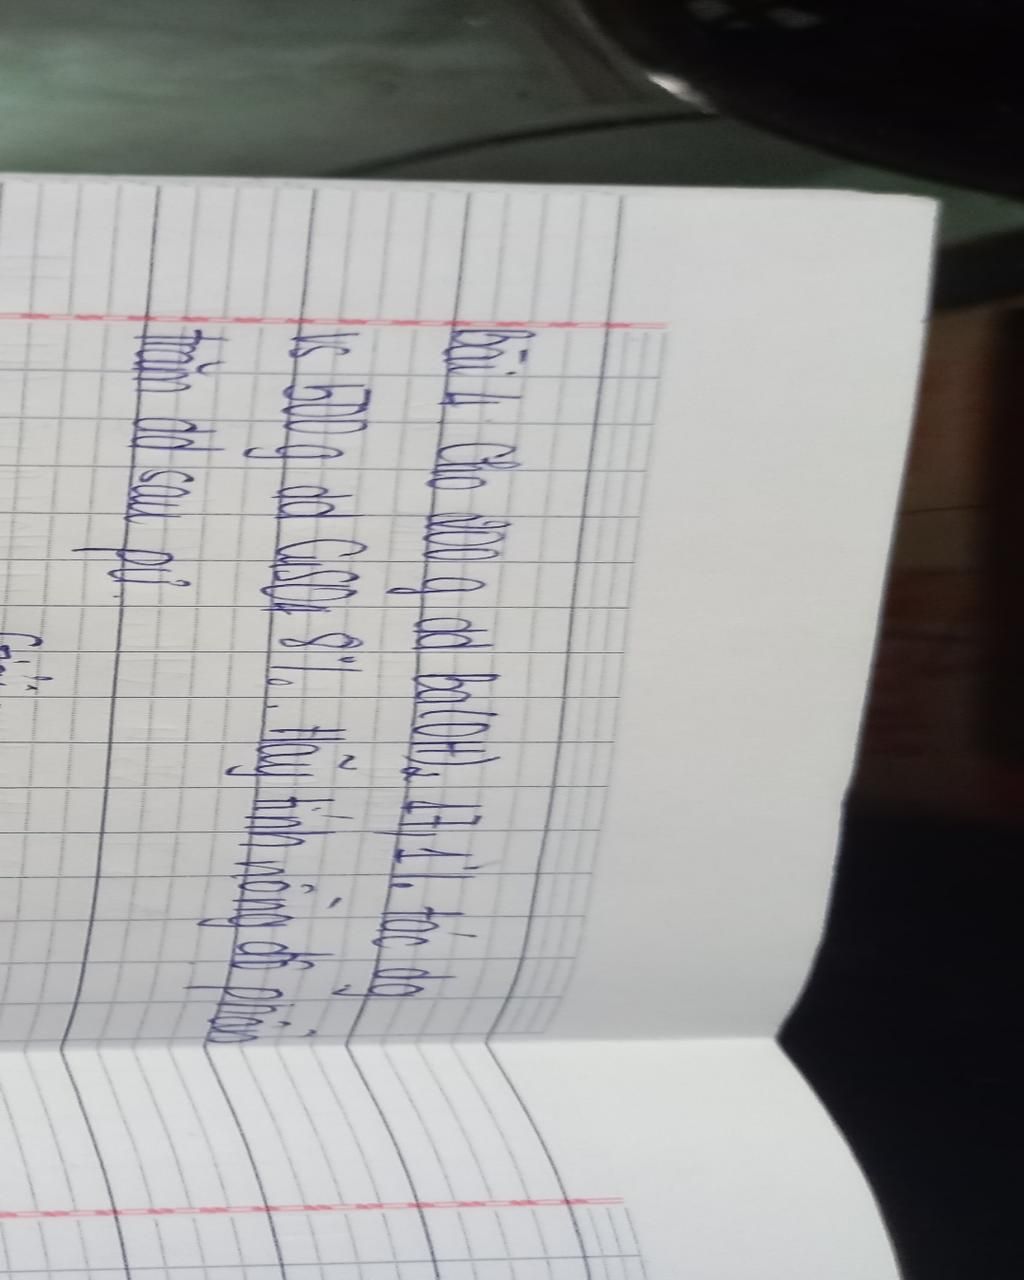 bài 1. Cho 200 g dd ba(OH)2 17,1%. tác dụ
vs 500 g dd CuSO4 8%. Hãy tính nồng độ phần
trăm dd sau pứ.